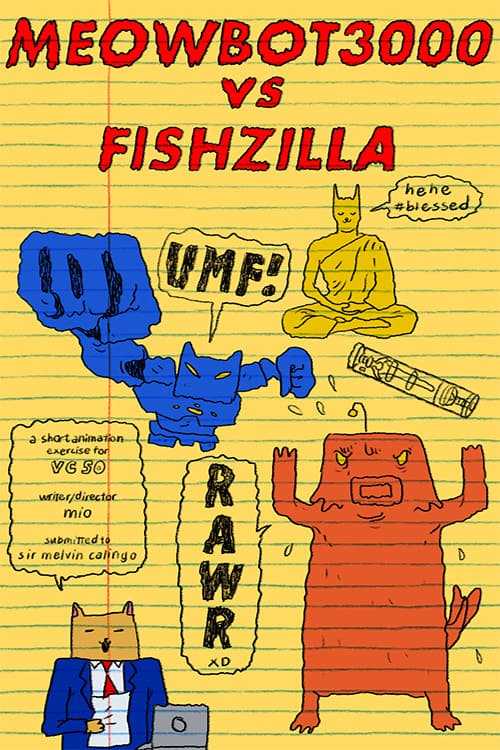 MEOWBOT3000
VS
FISHZILLA
hehe
#blessed
UMF!
a short animation
exercise for
VC 50
writer/director
mio
submitted to
sir melvin calingo
R
A
W
R
XD